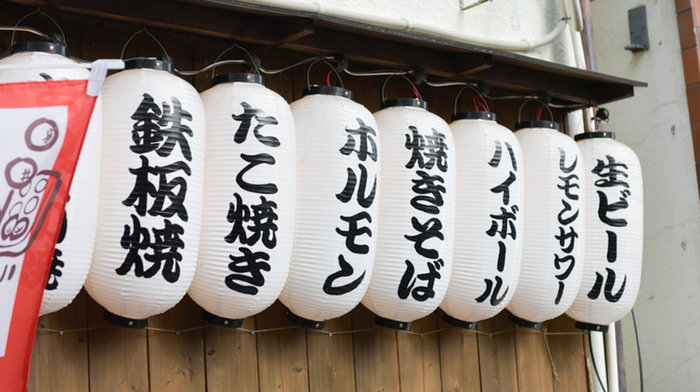 鉄板焼
たこ焼き
ホルモン
焼きそば
ハイボール
レモンサワー
生ビール